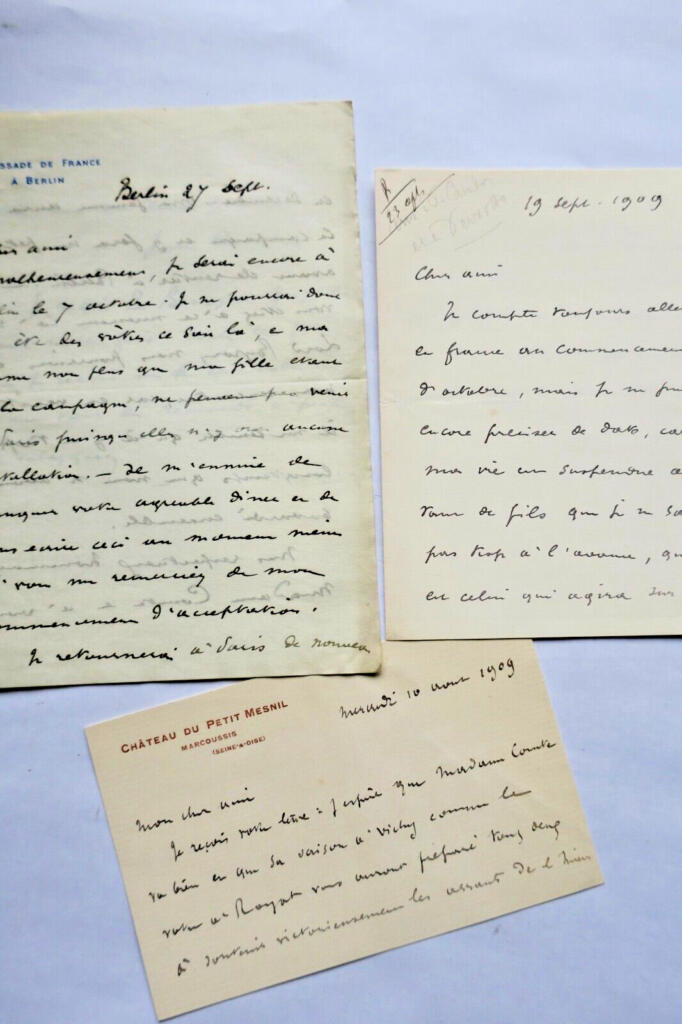 SSADE DE FRANCE
À BERLIN
Berlin 27 Sept.
ami
malheureusement, je serai encore à
lin le 7 octobre. Je ne pourrai donc
être des vôtres ce soir là, e ma
me non plus que ma fille étant
la campagne, ne peuvent pas venir
Paris puisqu'elles n'y ont aucune
stallation. – Je m'ennuie de
nquer votre agréable diner et de
us écrire ceci au moment même
où vous me remerciez de mon
mmencement d'acceptation.
Je retournerai à Paris de nouveau
R
23 sept.
19 sept. 1909
Cher ami
Je compte toujours alle
en france au commencemen
d'octobre, mais je ne pui
encore préciser de date, ca
ma vie en suspendue a
tant de fils que je ne sa
pas trop à l'avance, qu
en celui qui agira sur
CHÂTEAU DU PETIT MESNIL
MARCOUSSIS
(SEINE-&-OISE)
Mercredi 10 aout 1909
Mon cher ami
Je reçois votre lettre = J'espère que Madame Comte
va bien et que sa saison à Vichy comme la
votre à Royat vous auront préparé tous deux
à soutenir victorieusement les assauts de l'hiver